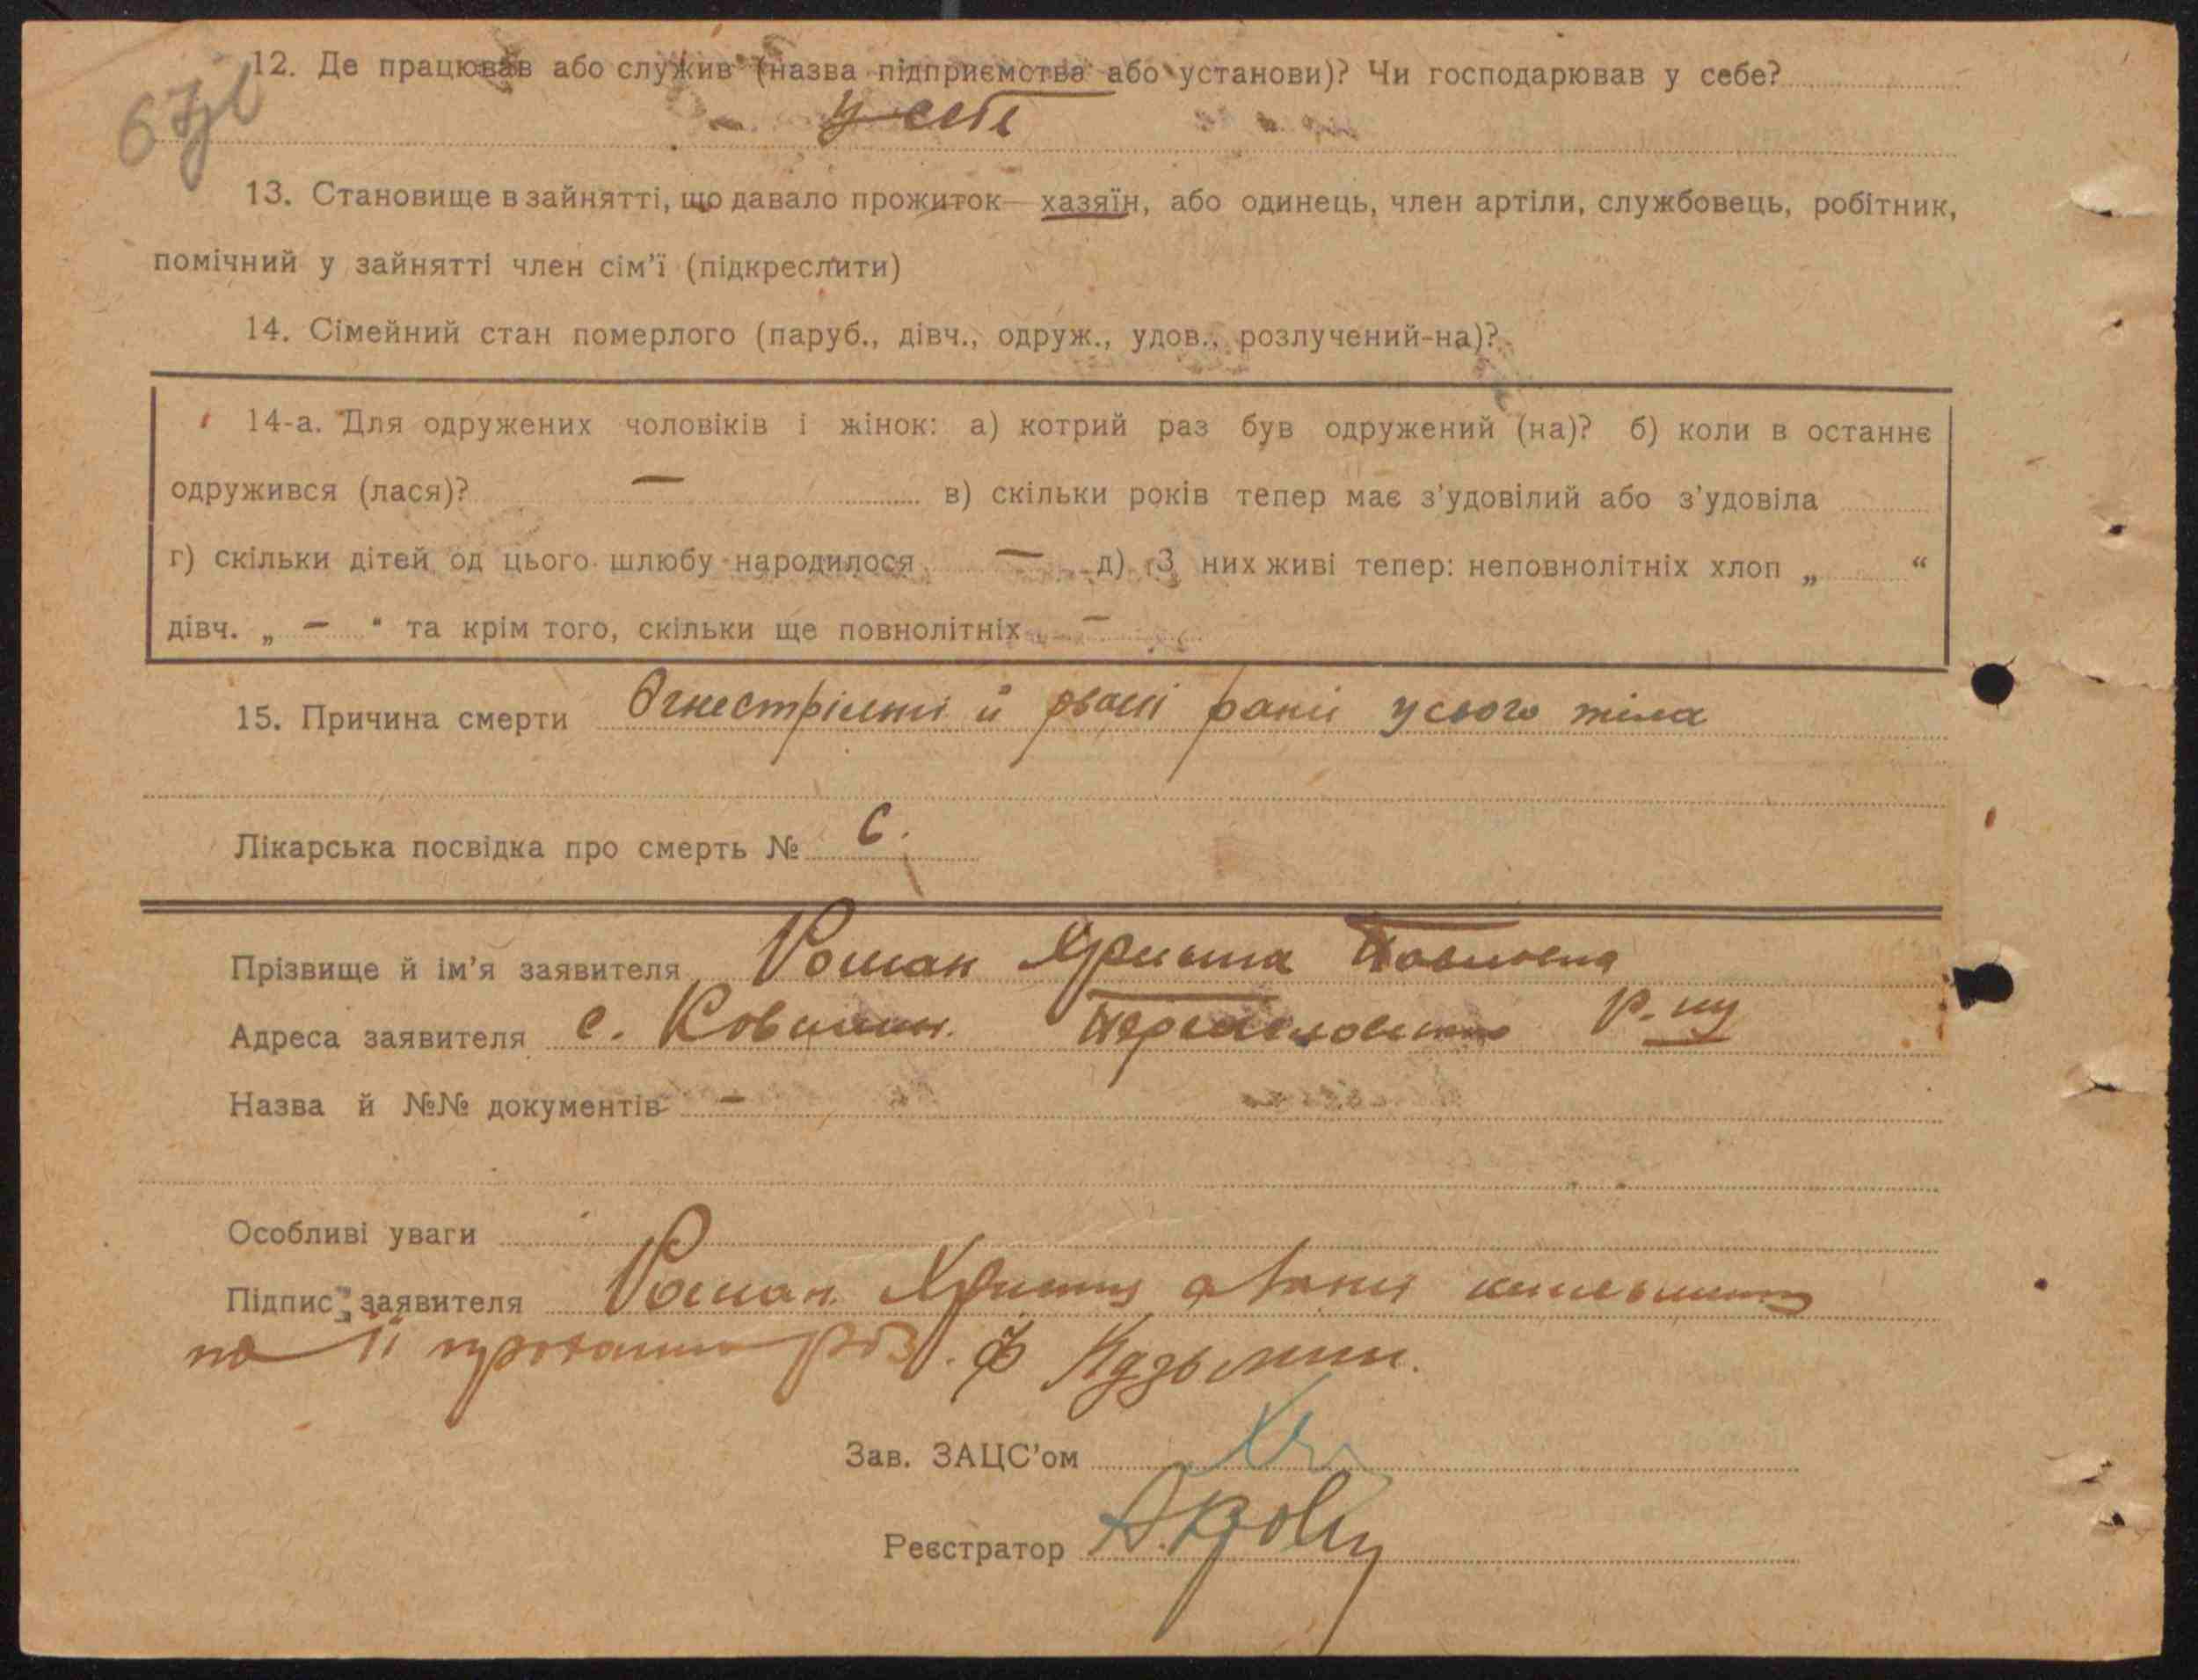 67
12. Де працював або служив (назва підприємства або установи)? Чи господарював у себе?
у себе
13. Становище в зайнятті, що давало прожиток — хазяїн, або одинець, член артіли, службовець, робітник,
помічний у зайнятті член сім’ї (підкреслити)
14. Сімейний стан померлого (паруб., дівч., одруж., удов., розлучений-на)?
14-а. Для одружених чоловіків і жінок: а) котрий раз був одружений (на)? б) коли в останнє
одружився (лася)? — в) скільки років тепер має з’удовілий або з’удовіла
г) скільки дітей од цього шлюбу народилося — д) З них живі тепер: неповнолітніх хлоп „ “
дівч. „ — “ та крім того, скільки ще повнолітніх —
15. Причина смерти Огнестрільні й рвані рани усього тіла
Лікарська посвідка про смерть № 6.
Прізвище й ім’я заявителя Роман Христя Павловна
Адреса заявителя с. р-ну
Назва й №№ документів —
Особливі уваги
Підпис заявителя Роман Христя
по її
Зав. ЗАЦС’ом
Реєстратор